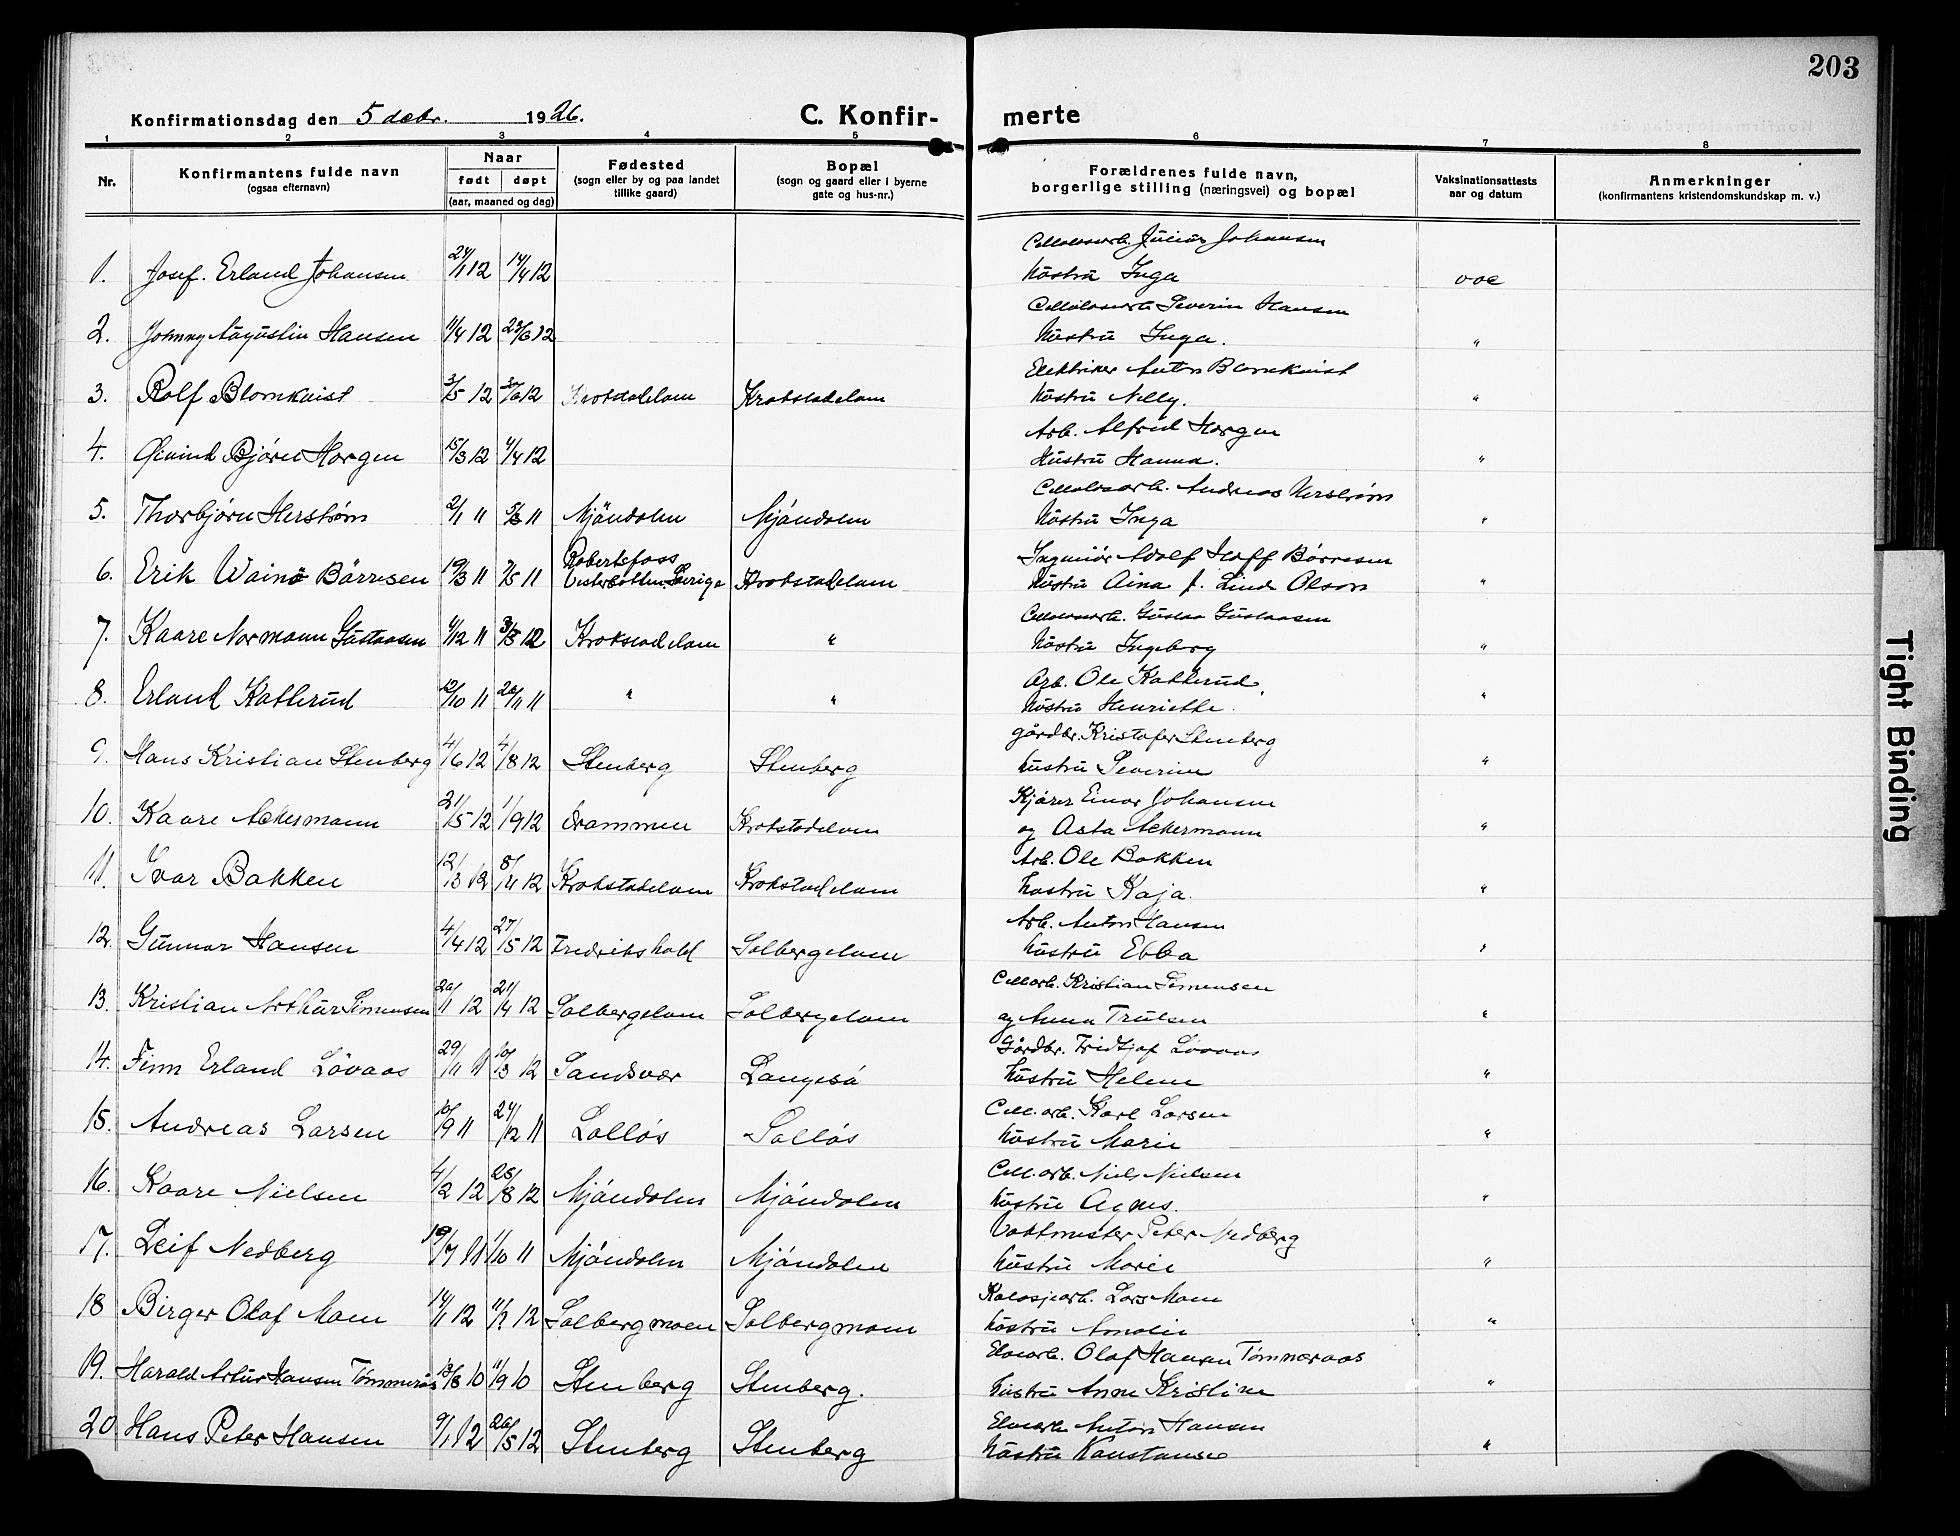 203
Konfirmationsdag den 5 decbr. 1926.
C. Konfir-
merte
1 2 3 4 5 6 7 8
Nr.
Konfirmantens fulde navn
(ogsaa efternavn)
Naar
født døpt
(aar, maaned og dag)
Fødested
(sogn eller by og paa landet
tillike gaard)
Bopæl
(sogn og gaard eller i byerne
gate og hus-nr.)
Forældrenes fulde navn,
borgerlige stilling (næringsvei) og bopæl
Vaksinationsattests
aar og datum
Anmerkninger
(konfirmantens kristendomskundskap m. v.)
Cellulosearb. Julius Johansen
1. Josef. Erland Johansen 24/1 12 14/4 12 hüstrü Inga vac
Cellulosearb. Severin Hansen
2. Johnny Aügüstin Hansen 11/4 12 23/6 12 hüstrü Inga. "
Elektriker Anton Blomkvist
3. Rolf Blomkvist 3/5 12 30/6 12 Krokstadelven Krokstadelven hüstrü Nelly. "
Arb. Alfred Horgen
4. Øivind Bjørn Horgen 15/3 12 4/4 12 Hüstrü Hanna. "
Cellulosearb. Andreas Herstrøm
5. Thorbjørn Herstrøm 2/1 11 5/3 11 Mjøndalen Mjøndalen hüstrü Inga "
Robertsfoss Ingeniør Adolf Hoff Børresen
6. Erik Wainø Börresen 19/3 11 7/5 11 Vesterbotten Sverige Krokstadelven hüstrü Aina f. Lind Olson "
Cellulosearb. Güstav Güstavsen
7. Kaare Normann Güstavsen 4/12 11 31/3 12 Krokstadelven " hüstrü Ingeborg "
Arb. Ole Katterüd
8. Erland Katterüd 12/10 11 26/11 11 " " hüstrü Henriette. "
gårdbr. Kristofer Stenberg
9. Hans Kristian Stenberg 4/6 12 4/8 12 Stenberg Stenberg hüstrü Severine "
Kjører Einar Johansen
10. Kaare Ackermann 21/5 12 1/9 12 Drammen Krokstadelven og Asta Ackermann "
Arb. Ole Bakken
11. Ivar Bakken 12/3 12 8/4 12 Krokstadelven Krokstadelven hüstrü Kaja. "
Arb. Anton Hansen
12. Günnar Hansen 4/4 12 27/5 12 Fredrikshald Solbergelven hüstrü Ebba "
Cell.arb. Kristian Simensen
13. Kristian Arthür Simensen 20/1 12 21/4 12 Solbergelven Solbergelven og Anna Trülsen "
Gårdbr. Fridtjof Løvaas
14. Finn Erland Løvaas 29/11 11 10/3 12 Sandsvær Langesø hüstrü Helene "
Cell.arb. Karl Larsen
15. Andreas Larsen 10/9 11 24/12 11 Solløs Solløs hüstrü Marie "
Cell.arb. Niels Nielsen
16. Kaare Nielsen 4/2 12 25/8 12 Mjøndalen Mjøndalen hüstrü Agnes. "
Vaktmester Peter Nedberg
17. Leif Nedberg 19/7 11 1/10 11 Mjøndalen Mjøndalen hüstrü Marie "
Lars Moen
18 Birger Olaf Moen 14/1 12 11/2 12 Solbergmoen Solbergmoen hüstrü Amalie "
Elvearb. Olaf Hansen Tømmeraas
19. Harald Artür Hansen Tømmerås 13/8 10 11/9 10 Stenberg Stenberg. hüstrü Anne Kristine "
Elvearb. Anton Hansen
20 Hans Peter Hansen 9/1 12 26/5 12 Stenberg Stenberg hüstrü Konstanse "
Tight Binding